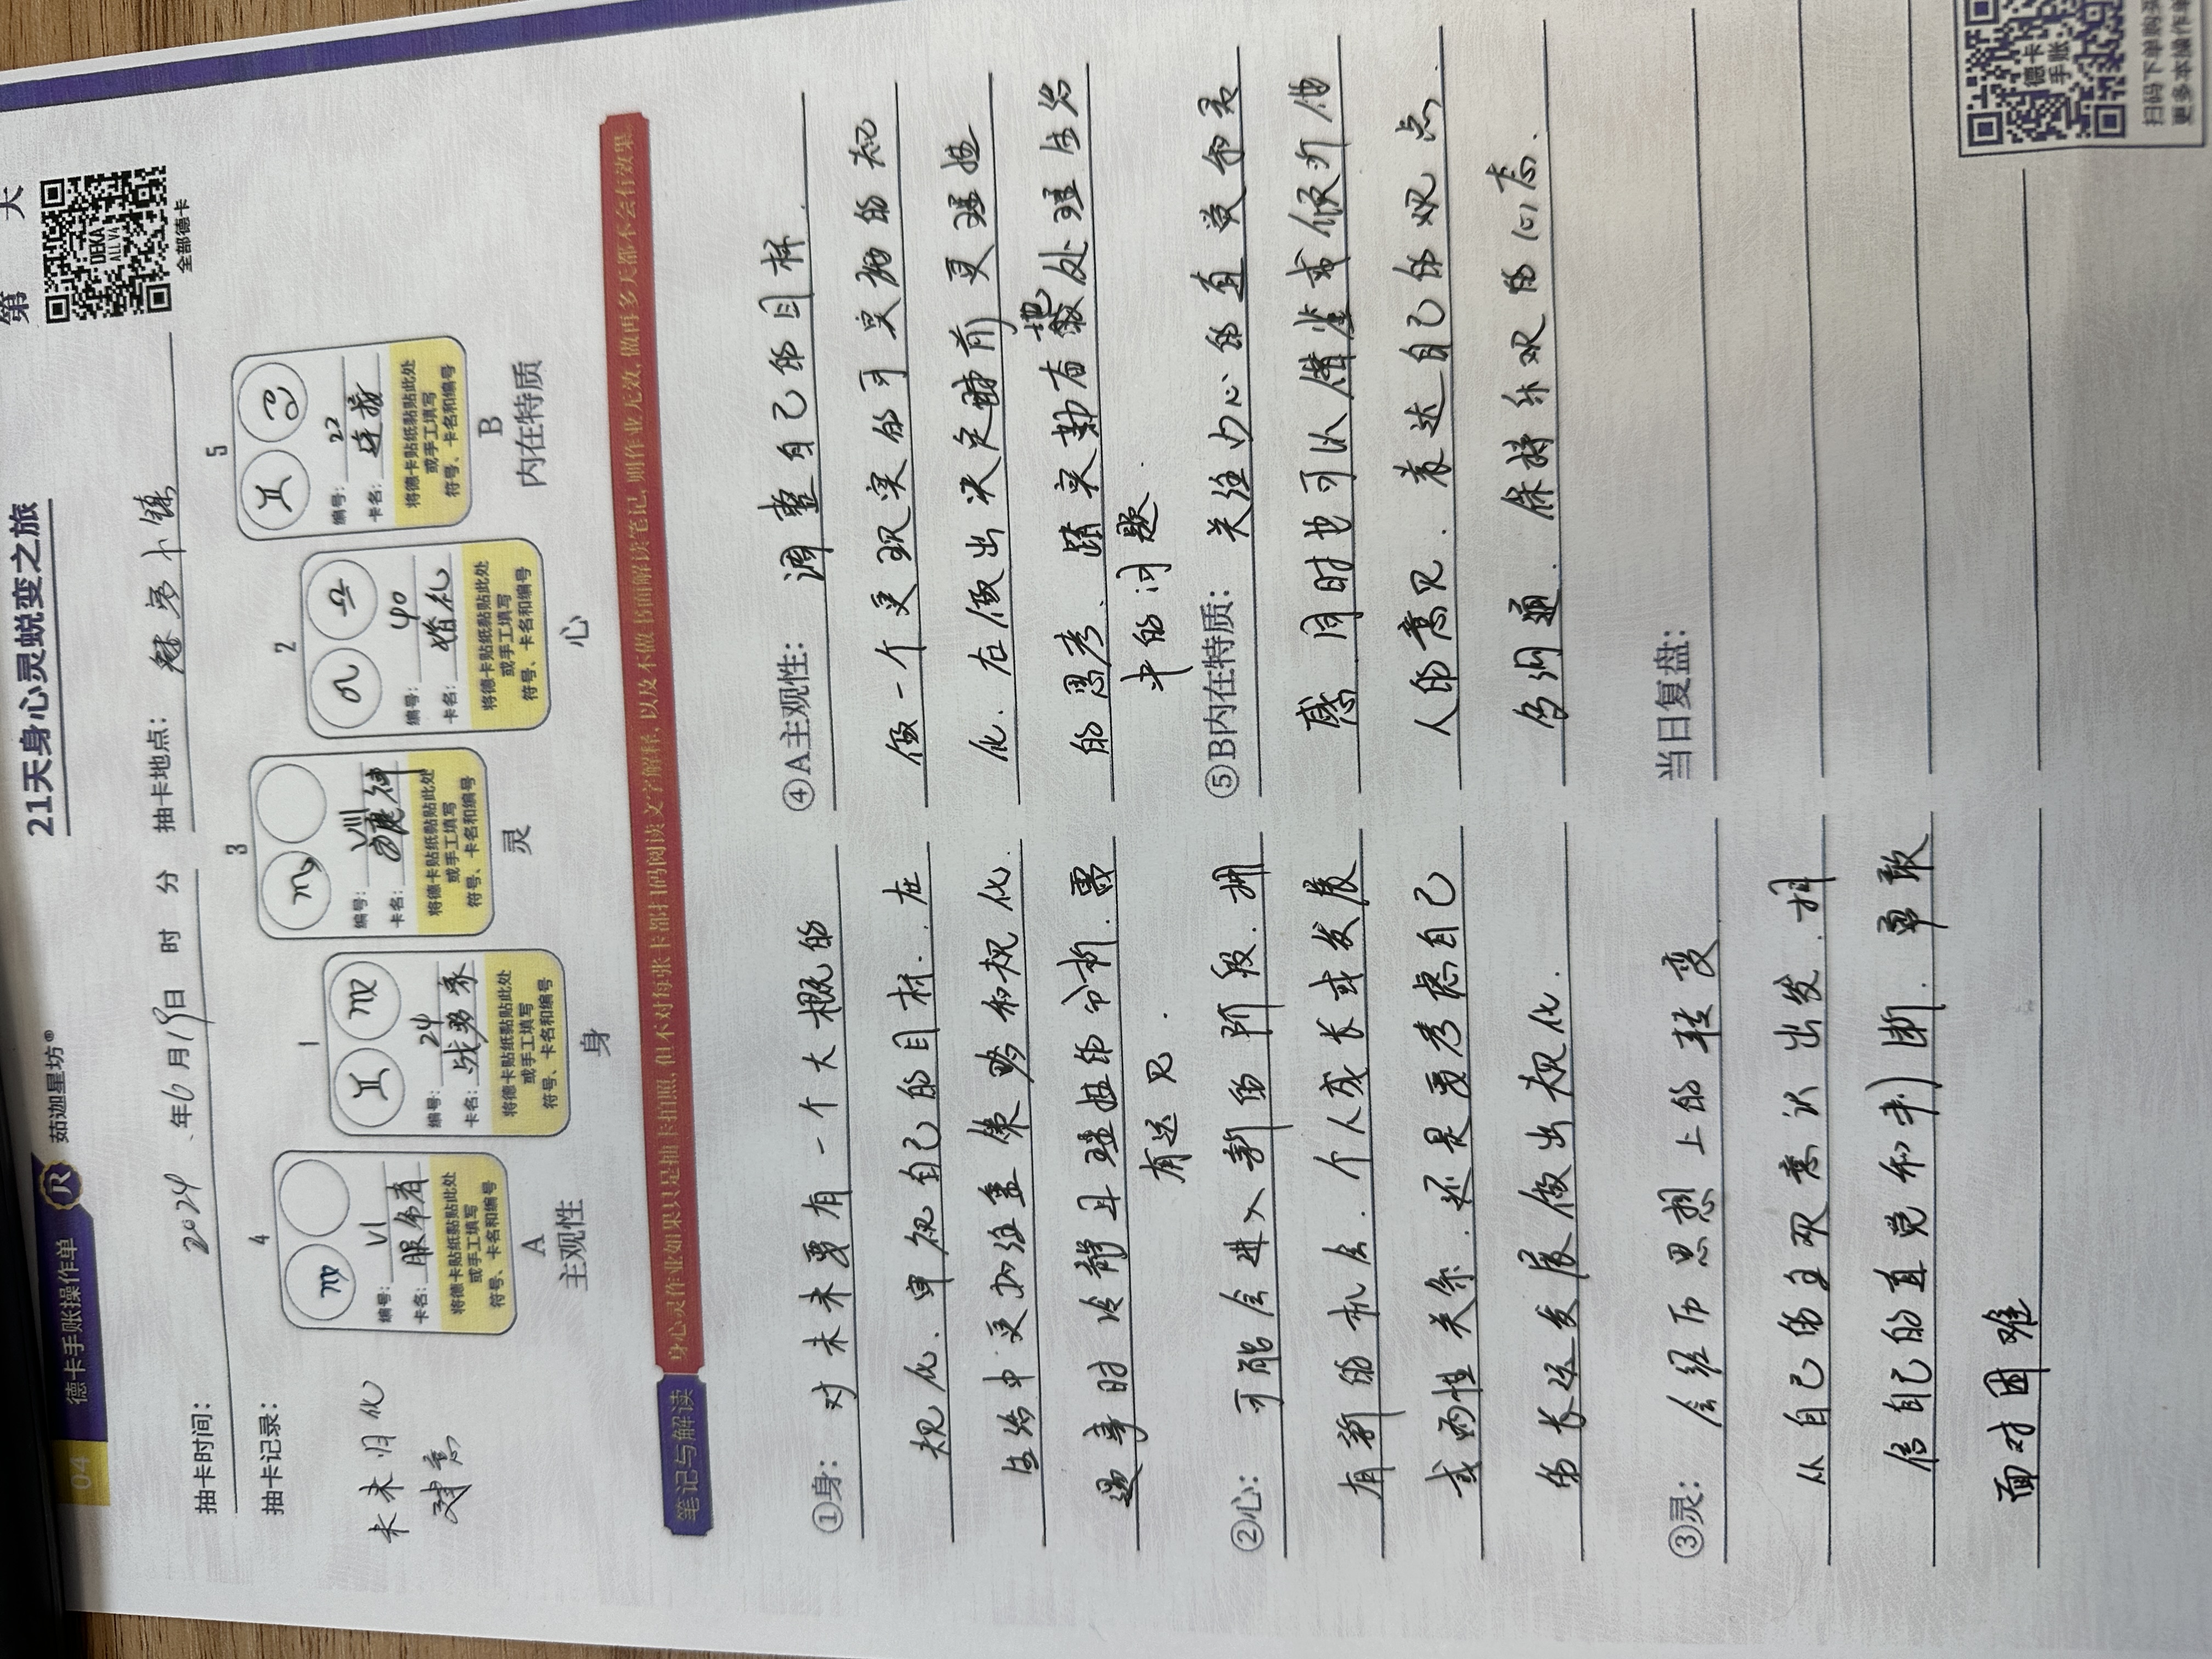 04 德卡手账操作单
茹迦星坊®
21天身心灵蜕变之旅
第 天
抽卡时间： 2024 年6月19日 时 分
抽卡地点：
DEKA
ALL VA
全部德卡
抽卡记录：
未来归化
建意
4
编号： VI
卡名： 服侍者
将德卡贴纸黏贴此处
或手工填写
符号、卡名和编号
A
主观性
1
编号： 24
卡名： 战勇象
将德卡贴纸黏贴此处
或手工填写
符号、卡名和编号
身
3
编号： VIII
卡名：
将德卡贴纸黏贴此处
或手工填写
符号、卡名和编号
灵
2
编号： 40
卡名： 婚礼
将德卡贴纸黏贴此处
或手工填写
符号、卡名和编号
心
5
编号： 22
卡名： 连接
将德卡贴纸黏贴此处
或手工填写
符号、卡名和编号
B
内在特质
笔记与解读
身心灵作业如果只是抽卡拍照，但不对每张卡都扫码阅读文字解释，以及不做书面解读笔记，则作业无效，做再多天都不会有效果
①身： 对未来要有一个大概的
规化．审视自己的目标．在
生活中更加注重策略和规化．
遇事时冷静且理性的分析．要
有远见．
②心： 可能会进入新的阶段．拥
有新的机会．个人成长或发展
或两性关系．还是要考虑自己
的长远发展做出规化．
③灵： 会经历思想上的转变
从自己的主观意识出发．相
信自己的直觉和判断．勇敢
面对困难
④A主观性： 调整自己的目标．
做一个更现实的可实物的规
化．在做出决定前更理性
的思考．踏实勤奋地处理生活
中的问题．
⑤B内在特质： 关注内心的直觉和灵
感．同时也可以借鉴或倾听他
人的意见．表达自己的观点．
多沟通．保持乐观的心态．
当日复盘：
德卡
手账
扫码下单购买
更多本操作单